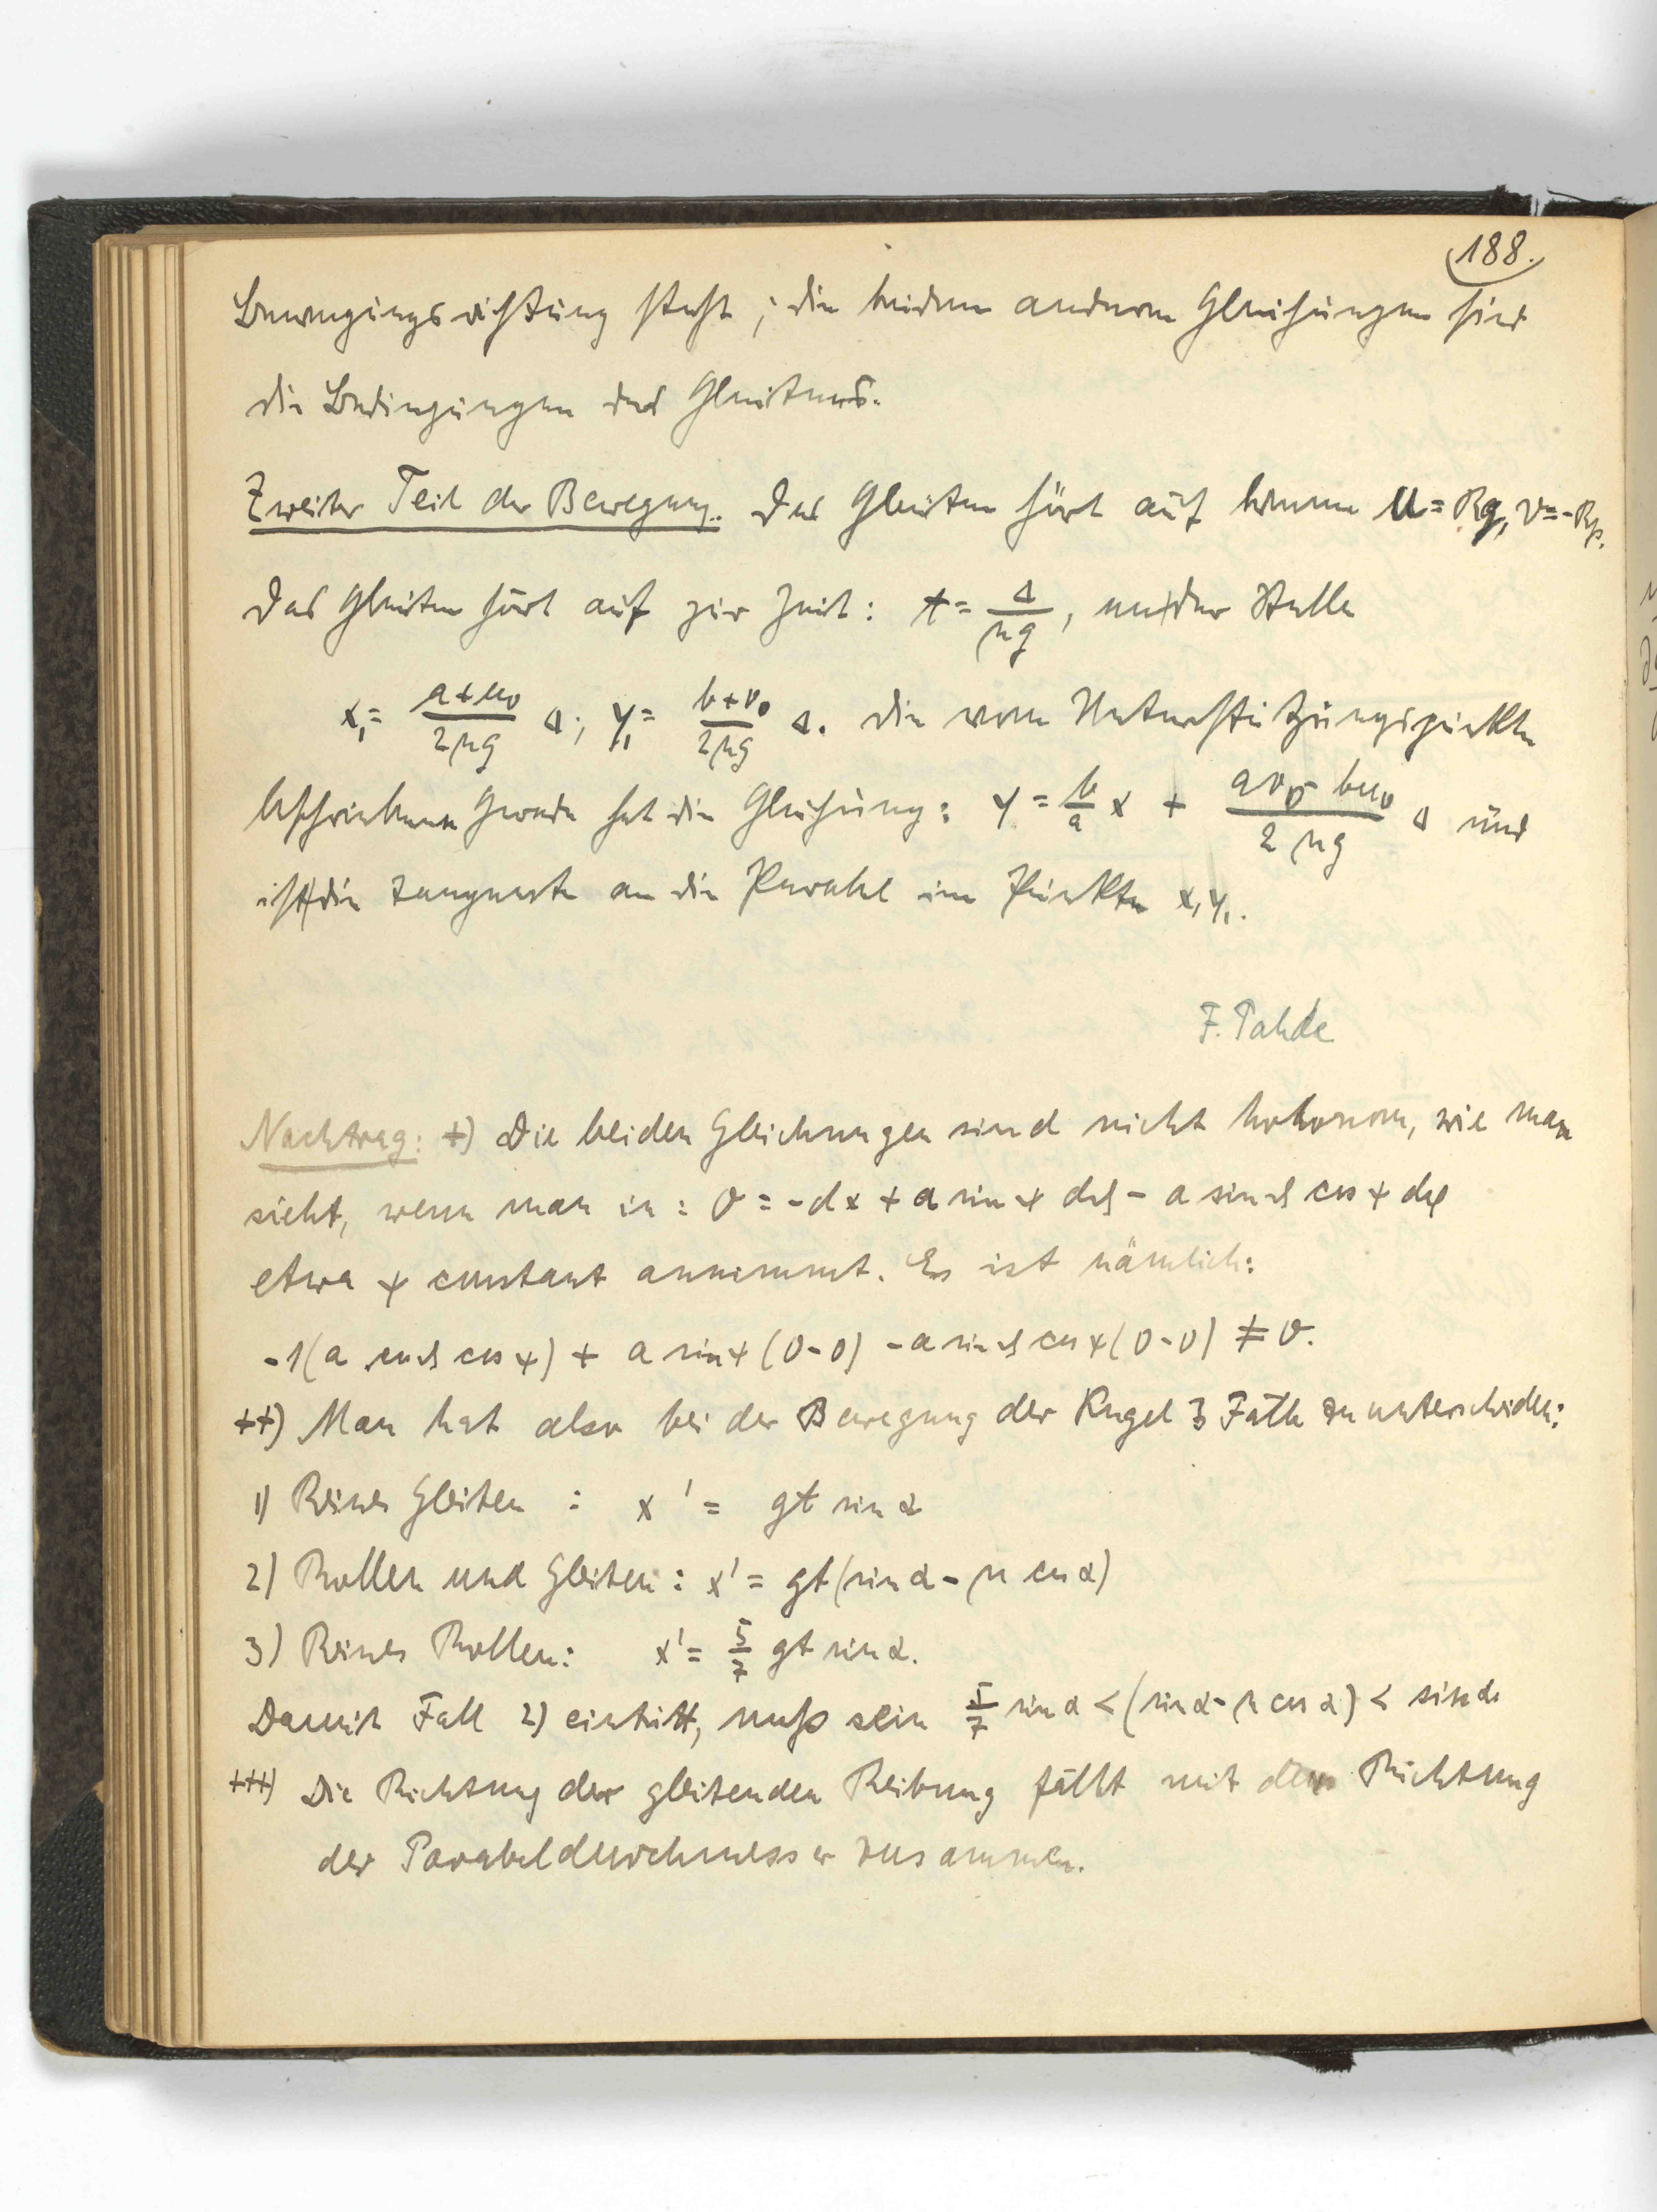 188.
Bewegungsrichtung steht; die beiden anderen Gleichungen sind
die Bedingungen des Gleitens.
Zweiter Teil der Bewegung. Das Gleiten hört auf wenn u = Rq, v = -Rp.
Das Gleiten hört auf zur Zeit: t = Δ/μg, an der Stelle
x₁ = (a+u₀)/(2μg) Δ; y₁ = (b+v₀)/(2μg) Δ. Die vom Unterstützungspunkte
beschriebene Gerade hat die Gleichung: y = b/a x + (av₀ - bu₀)/(2μg) Δ und
ist die Tangente an die Parabel im Punkte x₁y₁.
F. Pahde
Nachtrag: +) Die beiden Gleichungen sind nicht holonom, wie man
sieht, wenn man in: 0 = -dx + a sin ψ dϑ - a sin ϑ cos ψ dφ
etwa ψ constant annimmt. Es ist nämlich:
-1(a cos ϑ cos ψ) + a sin ψ (0-0) - a sin ϑ cos ψ (0-0) ≠ 0.
++) Man hat also bei der Bewegung der Kugel 3 Fälle zu unterscheiden:
1) Reines Gleiten : x' = gt sin α
2) Rollen und Gleiten: x' = gt (sin α - μ cos α)
3) Reines Rollen: x' = 5/7 gt sin α.
Damit Fall 2) eintritt, muß sein 5/7 sin α < (sin α - μ cos α) < sin α
+++) Die Richtung der gleitenden Reibung fällt mit der Richtung
der Parabeldurchmesser zusammen.